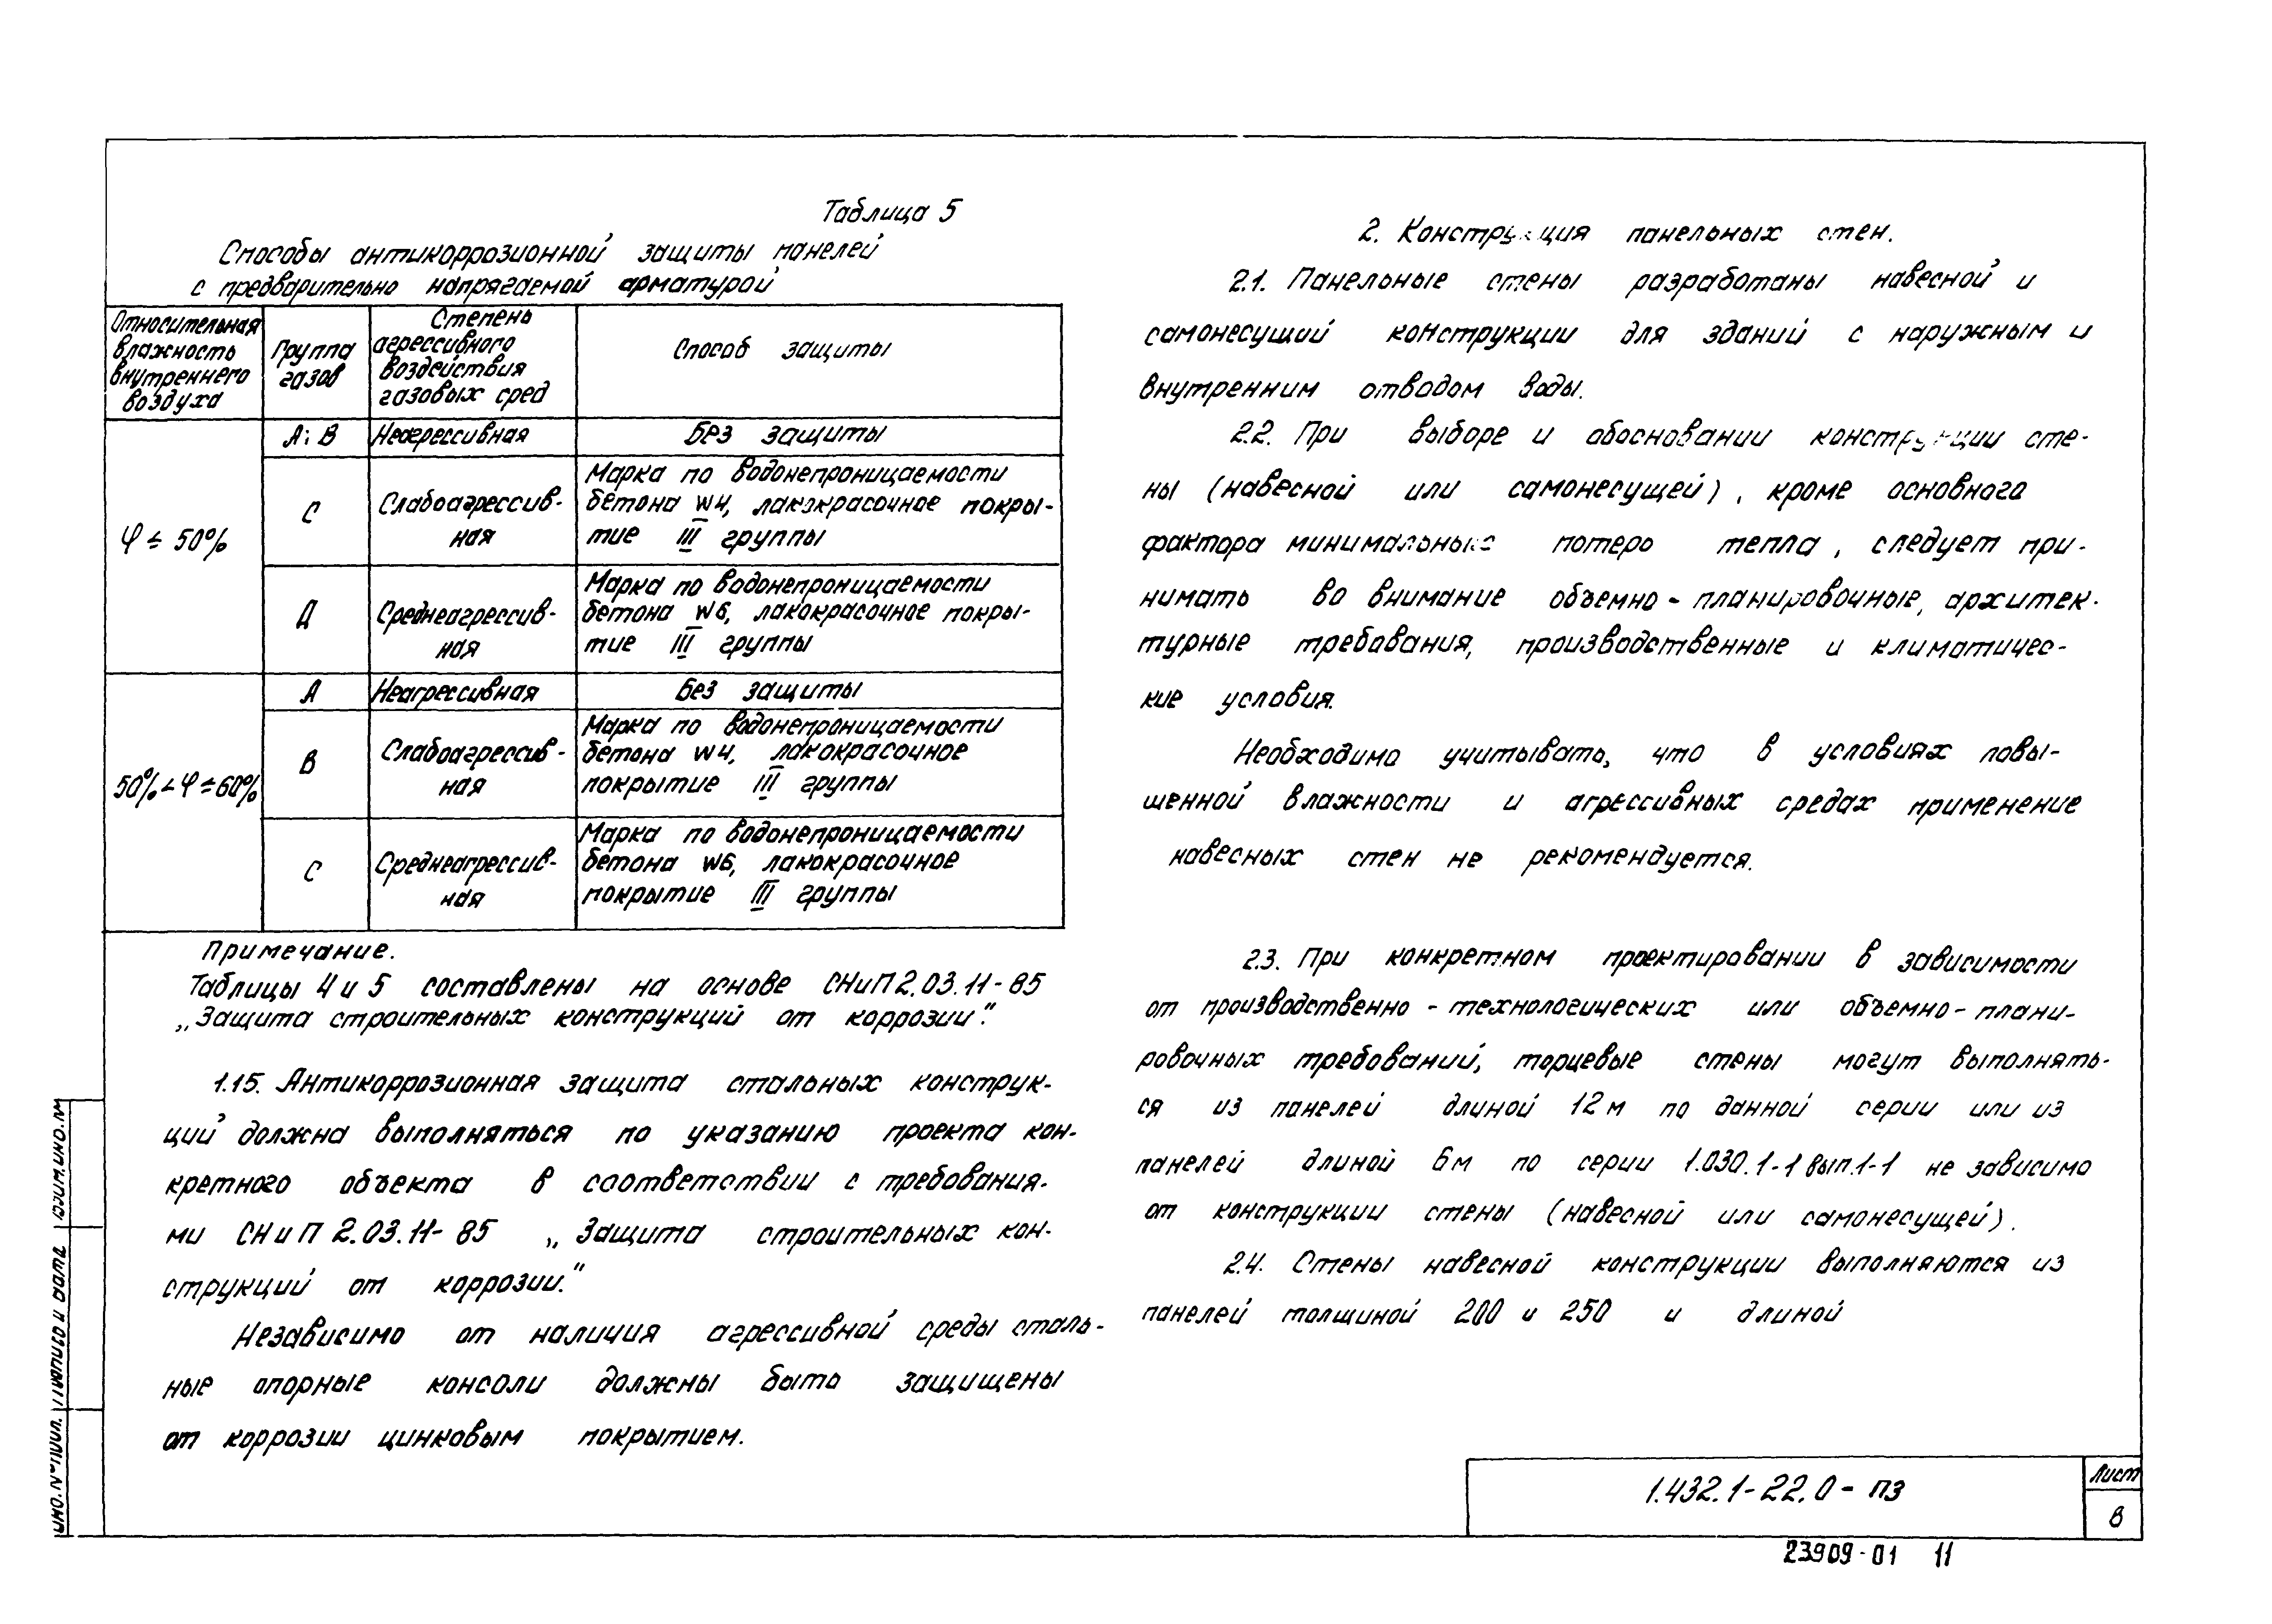 Таблица 5
Способы антикоррозионной защиты панелей
с предварительно напрягаемой арматурой
Относительная влажность внутреннего воздуха
Группа газов
Степень агрессивного воздействия газовых сред
Способ защиты
φ ≤ 50%
А; В
Неагрессивная
Без защиты
С
Слабоагрессив-
ная
Марка по водонепроницаемости
бетона W4, лакокрасочное покры-
тие III группы
Д
Среднеагрессив-
ная
Марка по водонепроницаемости
бетона W6, лакокрасочное покры-
тие III группы
50% < φ ≤ 60%
А
Неагрессивная
Без защиты
В
Слабоагрессив-
ная
Марка по водонепроницаемости
бетона W4, лакокрасочное
покрытие III группы
С
Среднеагрессив-
ная
Марка по водонепроницаемости
бетона W6, лакокрасочное
покрытие III группы
Примечание.
Таблицы 4 и 5 составлены на основе СНиП 2.03.11-85
„Защита строительных конструкций от коррозии".
1.15. Антикоррозионная защита стальных конструк-
ций должна выполняться по указанию проекта кон-
кретного объекта в соответствии с требования-
ми СНиП 2.03.11-85 „Защита строительных кон-
струкций от коррозии."
Независимо от наличия агрессивной среды сталь-
ные опорные консоли должны быть защищены
от коррозии цинковым покрытием.
2. Конструкция панельных стен.
2.1. Панельные стены разработаны навесной и
самонесущей конструкции для зданий с наружным и
внутренним отводом воды.
2.2. При выборе и обосновании конструкции сте-
ны (навесной или самонесущей), кроме основного
фактора минимальных потерь тепла, следует при-
нимать во внимание объемно-планировочные, архитек-
турные требования, производственные и климатичес-
кие условия.
Необходимо учитывать, что в условиях повы-
шенной влажности и агрессивных средах применение
навесных стен не рекомендуется.
2.3. При конкретном проектировании в зависимости
от производственно-технологических или объемно-плани-
ровочных требований, торцевые стены могут выполнять-
ся из панелей длиной 12м по данной серии или из
панелей длиной 6м по серии 1.030.1-1 вып.1-1 не зависимо
от конструкции стены (навесной или самонесущей).
2.4. Стены навесной конструкции выполняются из
панелей толщиной 200 и 250 и длиной
Инв.№ подл. Подпись и дата Взам.инв.№
1.432.1-22.0-ПЗ
Лист
8
23909-01 11